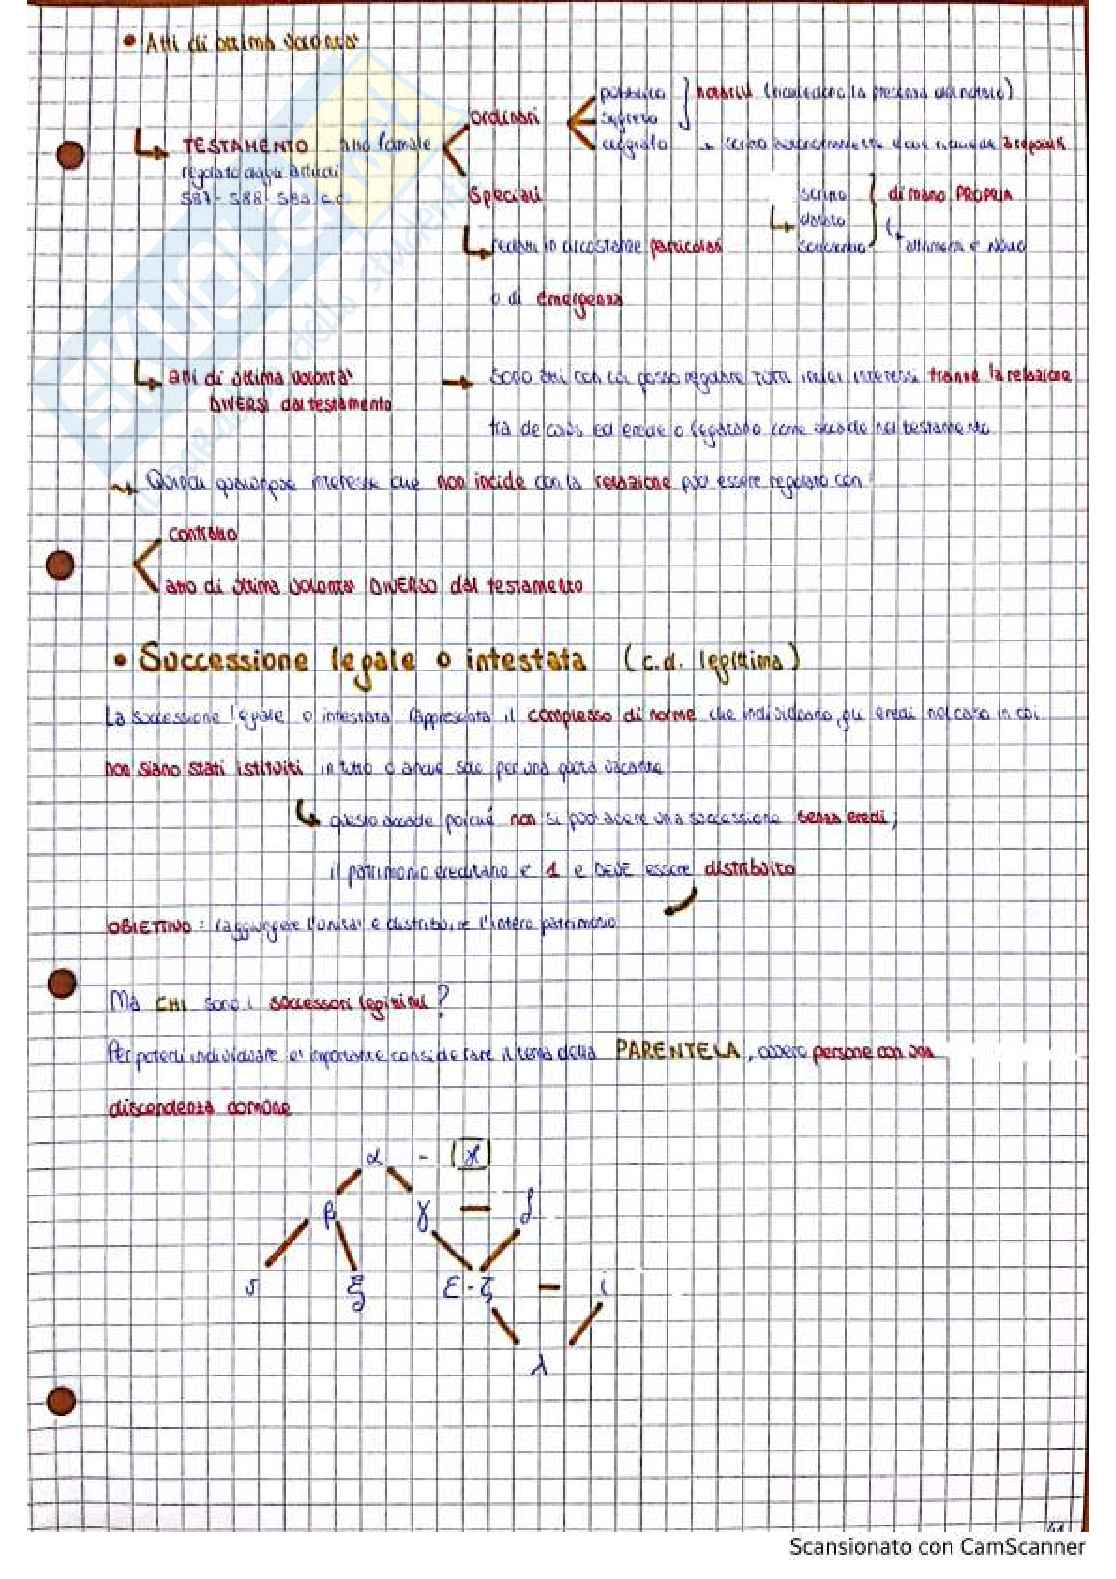 • Atti di ultima volontà
pubblico
segreto
olografo
notarili (richiedono la presenza del notaio)
ordinari
TESTAMENTO atto formale
regolato dagli articoli
587- 588- 589 c.c.
speciali
scritto
datato
sottoscritto
di mano PROPRIA
redatti in circostanze particolari
o di emergenza
atti di ultima volontà
DIVERSI dal testamento
sono atti con cui posso regolare TUTTI i miei interessi tranne la relazione
tra de cuius ed erede o legatario come accade nel testamento
Quindi qualunque interesse che non incide con la relazione può essere regolato con:
contratto
atto di ultima volontà DIVERSO dal testamento
• Successione legale o intestata (c.d. legittima)
La successione legale o intestata rappresenta il complesso di norme che individuano gli eredi nel caso in cui
non siano stati istituiti in tutto o anche solo per una quota vacante
questo accade poiché non si può avere una successione senza eredi;
il patrimonio ereditario è 1 e DEVE essere distribuito
OBIETTIVO: raggiungere l'unità e distribuire l'intero patrimonio
Ma CHI sono i successori legittimi?
Per poterli individuare è importante considerare il tema della PARENTELA, ovvero persone con una
discendenza comune
α -
β γ — δ
ξ ε - ζ — i
λ
Scansionato con CamScanner